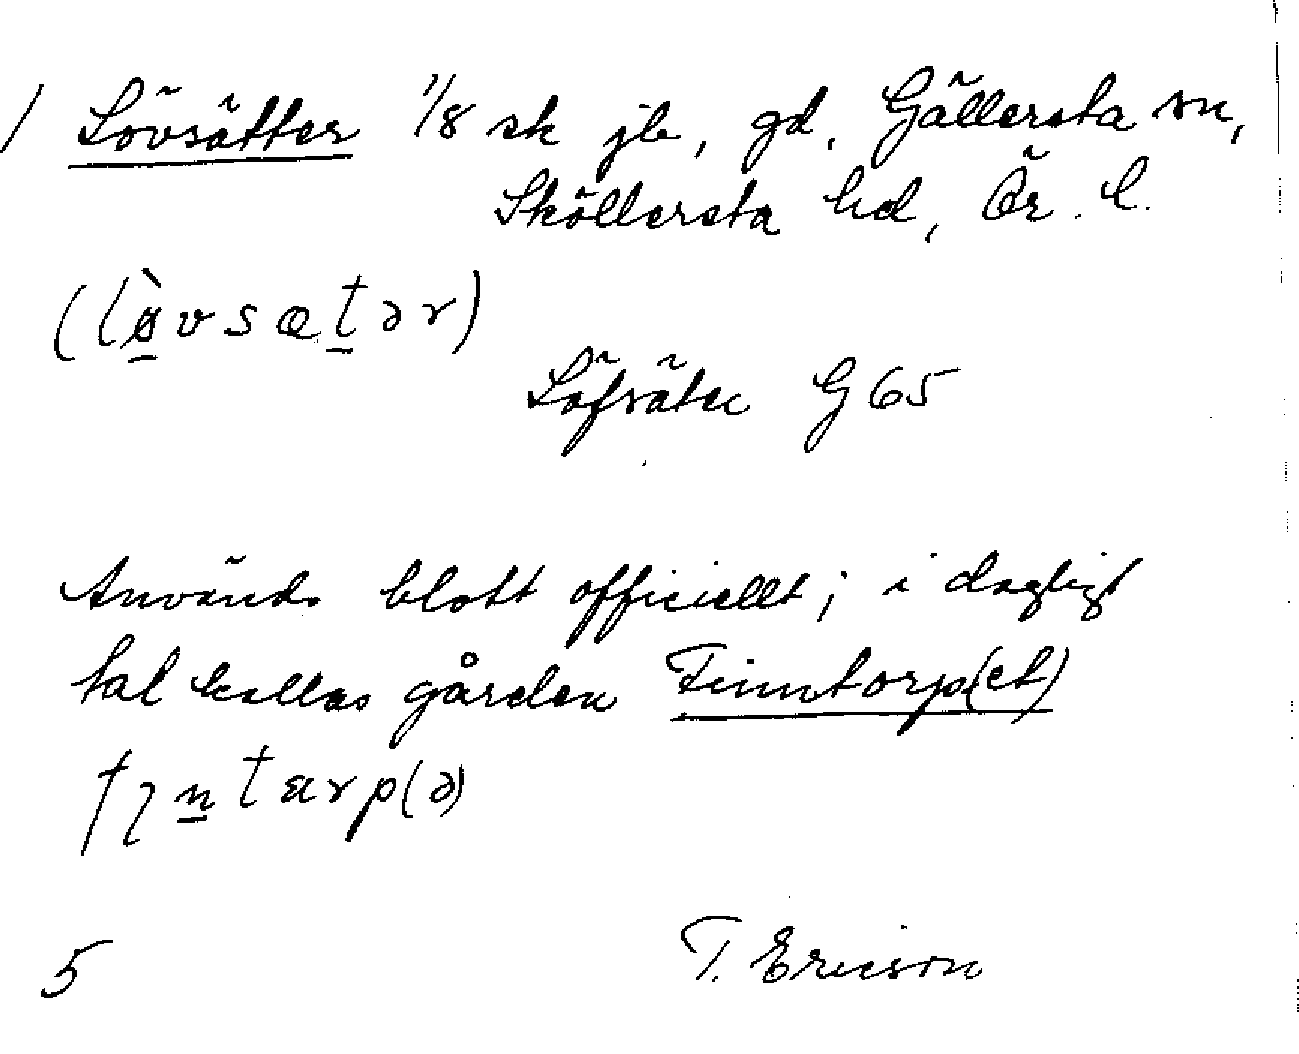 / Lövsätter 1/8 sk jb, gd, Gällersta sn,
Sköllersta hd, Ör. l.
(lø̀vsætər)
Löfsäter G 65
Används blott officiellt; i dagligt
tal kallas gården Finntorp(et)
fɪntarp(ə)
5 T. Ericson